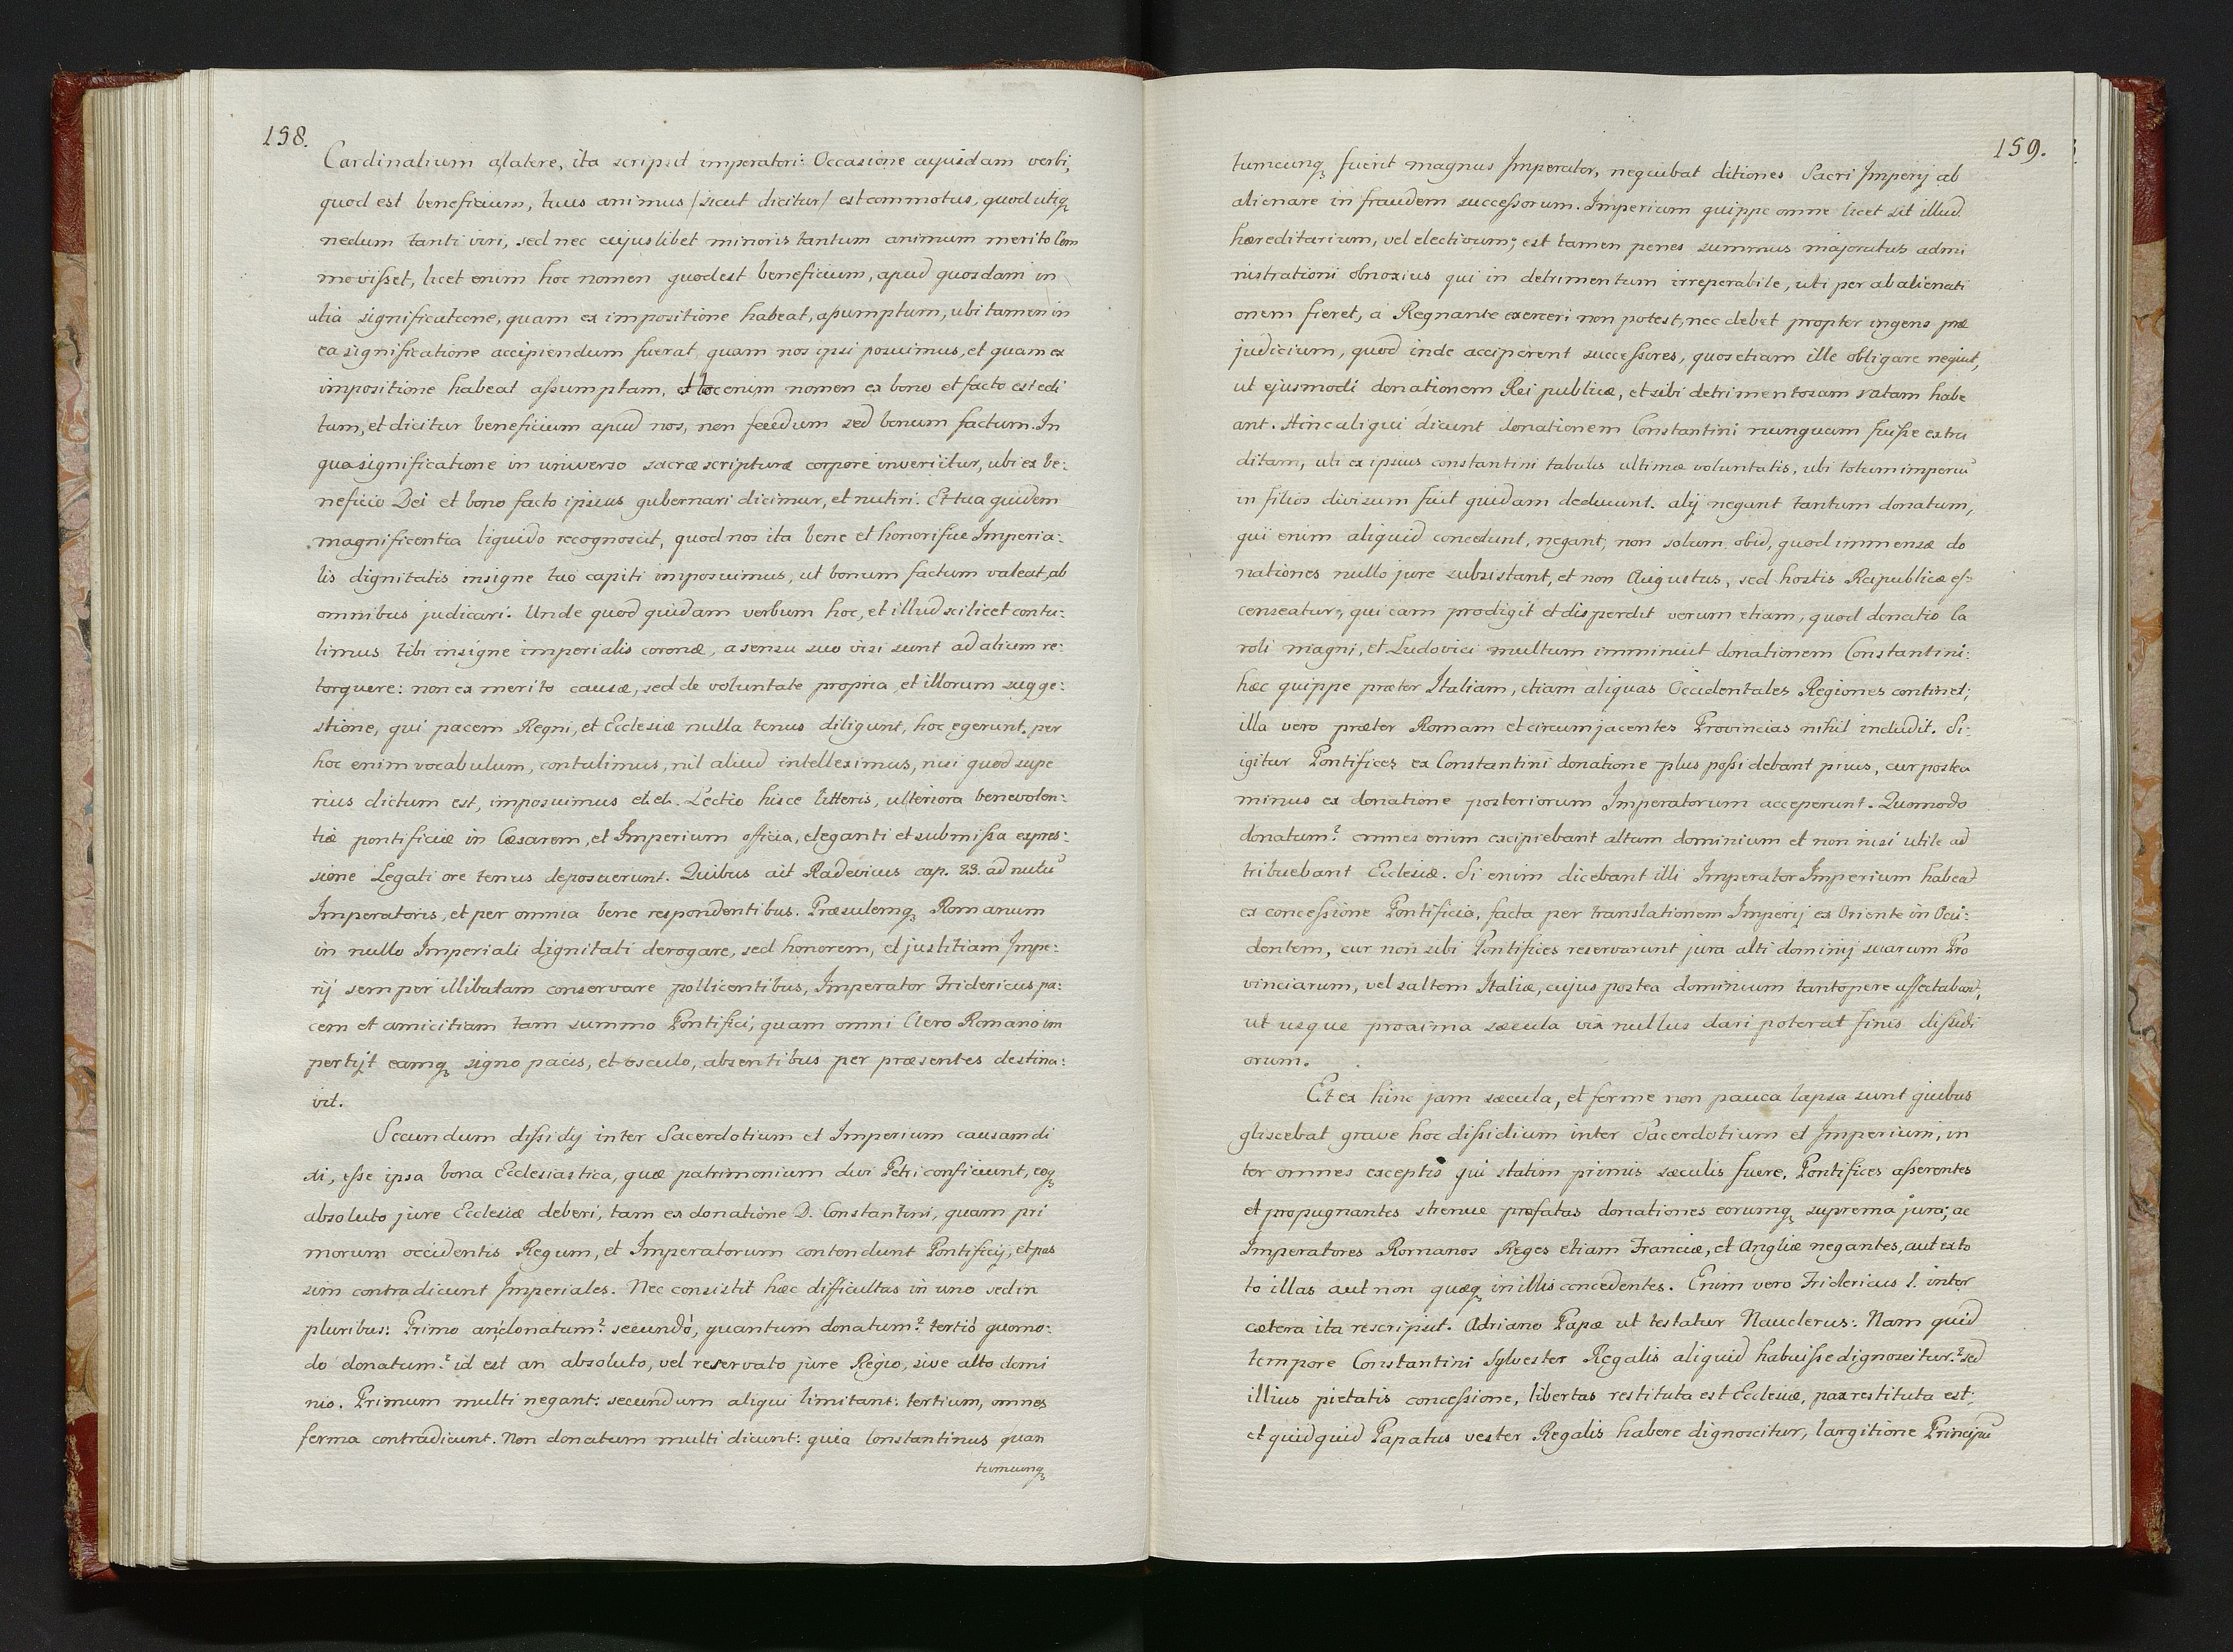 158.
Cardinalium a latere, ita scripsit imperatori: Occasione cujusdam verbi,
quod est beneficium, tuus animus /sicut dicitur/ est commotus, quod utiq3
nedum tanti viri, sed nec cujuslibet minoris tantum animum merito com
movisset, licet enim hoc nomen quod est beneficium, apud quosdam in
alia significatione, quam ex impositione habeat, asumptum, ubi tamen in
ea significatione accipiendum fuerat, quam nos ipsi posuimus, et quam ex
impositione habeat assumptam, Hoc enim nomen ex bono et facto est edi
tum, et dicitur beneficium apud nos, non feudum sed bonum factum. In
qua significatione in universo sacræ scripturæ corpore inveniitur, ubi ex be:
neficio Dei et bono facto ipsius gubernari dicimur, et nutiri. Et tua quidem
magnificentia liquido recognoscit, quod nos ita bene et honorifice Imperia:
lis dignitatis insigne tuo capiti imposuimus, ut bonum factum valeat, ab
omnibus judicari. Unde quod quidam verbum hoc, et illud scilicet contu:
limus tibi insigne imperialis coronæ, a sensu suo visi sunt ad alium re:
torquere: non ex merito causæ, sed de voluntate propria, et illorum sugge:
stione, qui pacem Regni, et Ecclesiæ nulla tenus diligunt, hoc egerunt. per
hoc enim vocabulum, contulimus, nil aliud intelleximus, nisi quod supe
rius dictum est, imposuimus et. et. Lectio hisce litteris, ulteriora benevolen:
tiæ pontificiæ in Cæsarem, et Imperium officia, eleganti et submissa expres:
sione Legati ore tenus deposuerunt. Quibus ait Radevicus cap. 23. ad nutū
Imperatoris, et per omnia bene respondentibus. Præsulemq3 Romanum
in nullo Imperiali dignitati derogare, sed honorem, et justitiam Impe:
rij semper illibatam conservare pollicentibus, Imperator Fridericus pa:
cem et amicitiam tam summo Pontifici, quam omni Clero Romano im
pertijt eamq3 signo pacis, et osculo, absentibus per præsentes destina:
vit.
Secundum dissidij inter Sacerdotium et Imperium causam di
xi, esse ipsa bona Ecclesiastica, quæ patrimonium divi Petri conficiunt, eoq3
absoluto jure Ecclesiæ deberi, tam ex donatione D. Constantini, quam pri
morum occidentis Regum, et Imperatorum contendunt Pontificij, et pas
sim contradicunt Imperiales. Nec consistit hæc difficultas in uno sed in
pluribus: Primo an donatum? secundò, quantum donatum? tertiò quomo:
do donatum? id est an absoluto, vel reservato jure Regio, sive alto domi
nio. Primum multi negant: secundum aliqui limitant: tertium, omnes
ferma contradicunt. Non donatum multi dicunt: quia Constantinus quan
tumcunq3
159.
tumcunq3 fuerit magnus Imperator, nequibat ditiones Sacri Imperij ab
alienare in fraudem successorum. Imperium quippe omne licet sit illud
hæreditarium, vel electivum; est tamen penes summus majoratus admi
nistrationi obnoxius qui in detrimentum irreperabile, uti per abalienati
onem fieret, a Regnante exerceri non potest, nec debet propter ingens præ
judicium, quod inde acciperent successores, quos etiam ille obligare nequit,
ut ejusmodi donationem Rei publicæ, et sibi detrimentosam ratam habe
ant. Hinc aliqui dicunt donationem Constantini nunquam fuisse extra
ditam, uti ex ipsius constantini tabulis ultimæ voluntatis, ubi totum imperiū
in filios divisum fuit quidam deducunt. alij negant tantum donatum,
qui enim aliquid concedunt, negant, non solum ob id, quod immensæ do
nationes nullo jure subsistant, et non Augustus, sed hostis Reipublicæ es:
censeatur, qui eam prodigit et disperdit verum etiam, quod donatio Ca
roli magni, et Ludovici multum imminuit donationem Constantini:
hæc quippe præter Italiam, etiam aliquas Occidentales Regiones continet;
illa vero præter Romam et circumjacentes Provincias nihil includit. Si:
igitur Pontifices ex Constantini donatione plus possidebant prius, cur postea
minus ex donatione posteriorum Imperatorum acceperunt. Quomodo
donatum? omnes enim excipiebant altum dominium et non nisi utile ad
tribuebant Ecclesiæ. Si enim dicebant illi Imperator Imperium habeat
ex concessione Pontificia, facta per translationem Imperij ex Oriente in Occi:
dentem, cur non sibi Pontifices reservarunt jura alti dominij suarum Pro
vinciarum, vel saltem Italiæ, cujus postea dominium tantopere affectabant,
ut usque proxima sæcula vix nullus dari poterat finis dissidi
orum.
Et ex hinc jam sæcula, et ferme non pauca lapsa sunt quibus
gliscebat grave hoc dissidium inter Sacerdotium et Imperium, in
ter omnes exceptis qui statim primis sæculis fuere, Pontifices asserentes
et propugnantes strenue præfatas donationes eorumq3 suprema jura; ac
Imperatores Romanos Reges etiam Franciæ, et Angliæ negantes, aut ex to
to illas aut non quæq3 in illis concedentes. Enim vero Fridericus I. inter
cætera ita rescripsit. Adriano Papæ ut testatur Nauclerus: Nam quid
tempore Constantini Sylvester Regalis aliquid habuisse dignoscitur? sed
illius pietatis concessione, libertas restituta est Ecclesiæ, pax restituta est;
et quidquid Papatus vester Regalis habere dignoscitur, largitione Principū